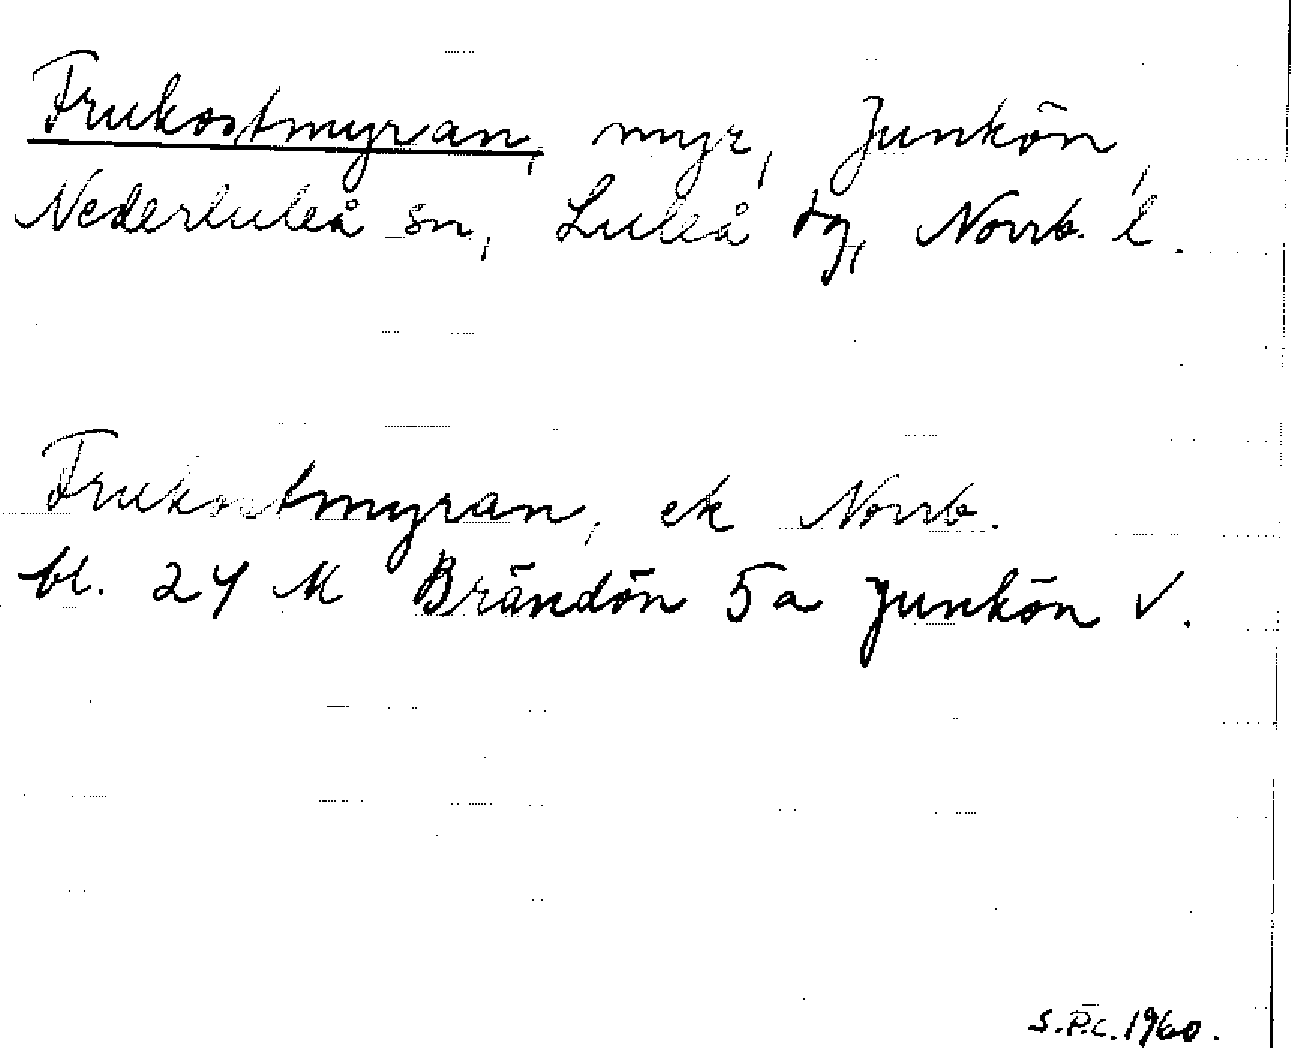 Frukostmyran, myr, Junkön,
Nederluleå sn, Luleå tg, Norrb. l.
Frukostmyran, ek Norrb.
bl. 24 M Brändön 5a Junkön V.
S.P.C. 1960.